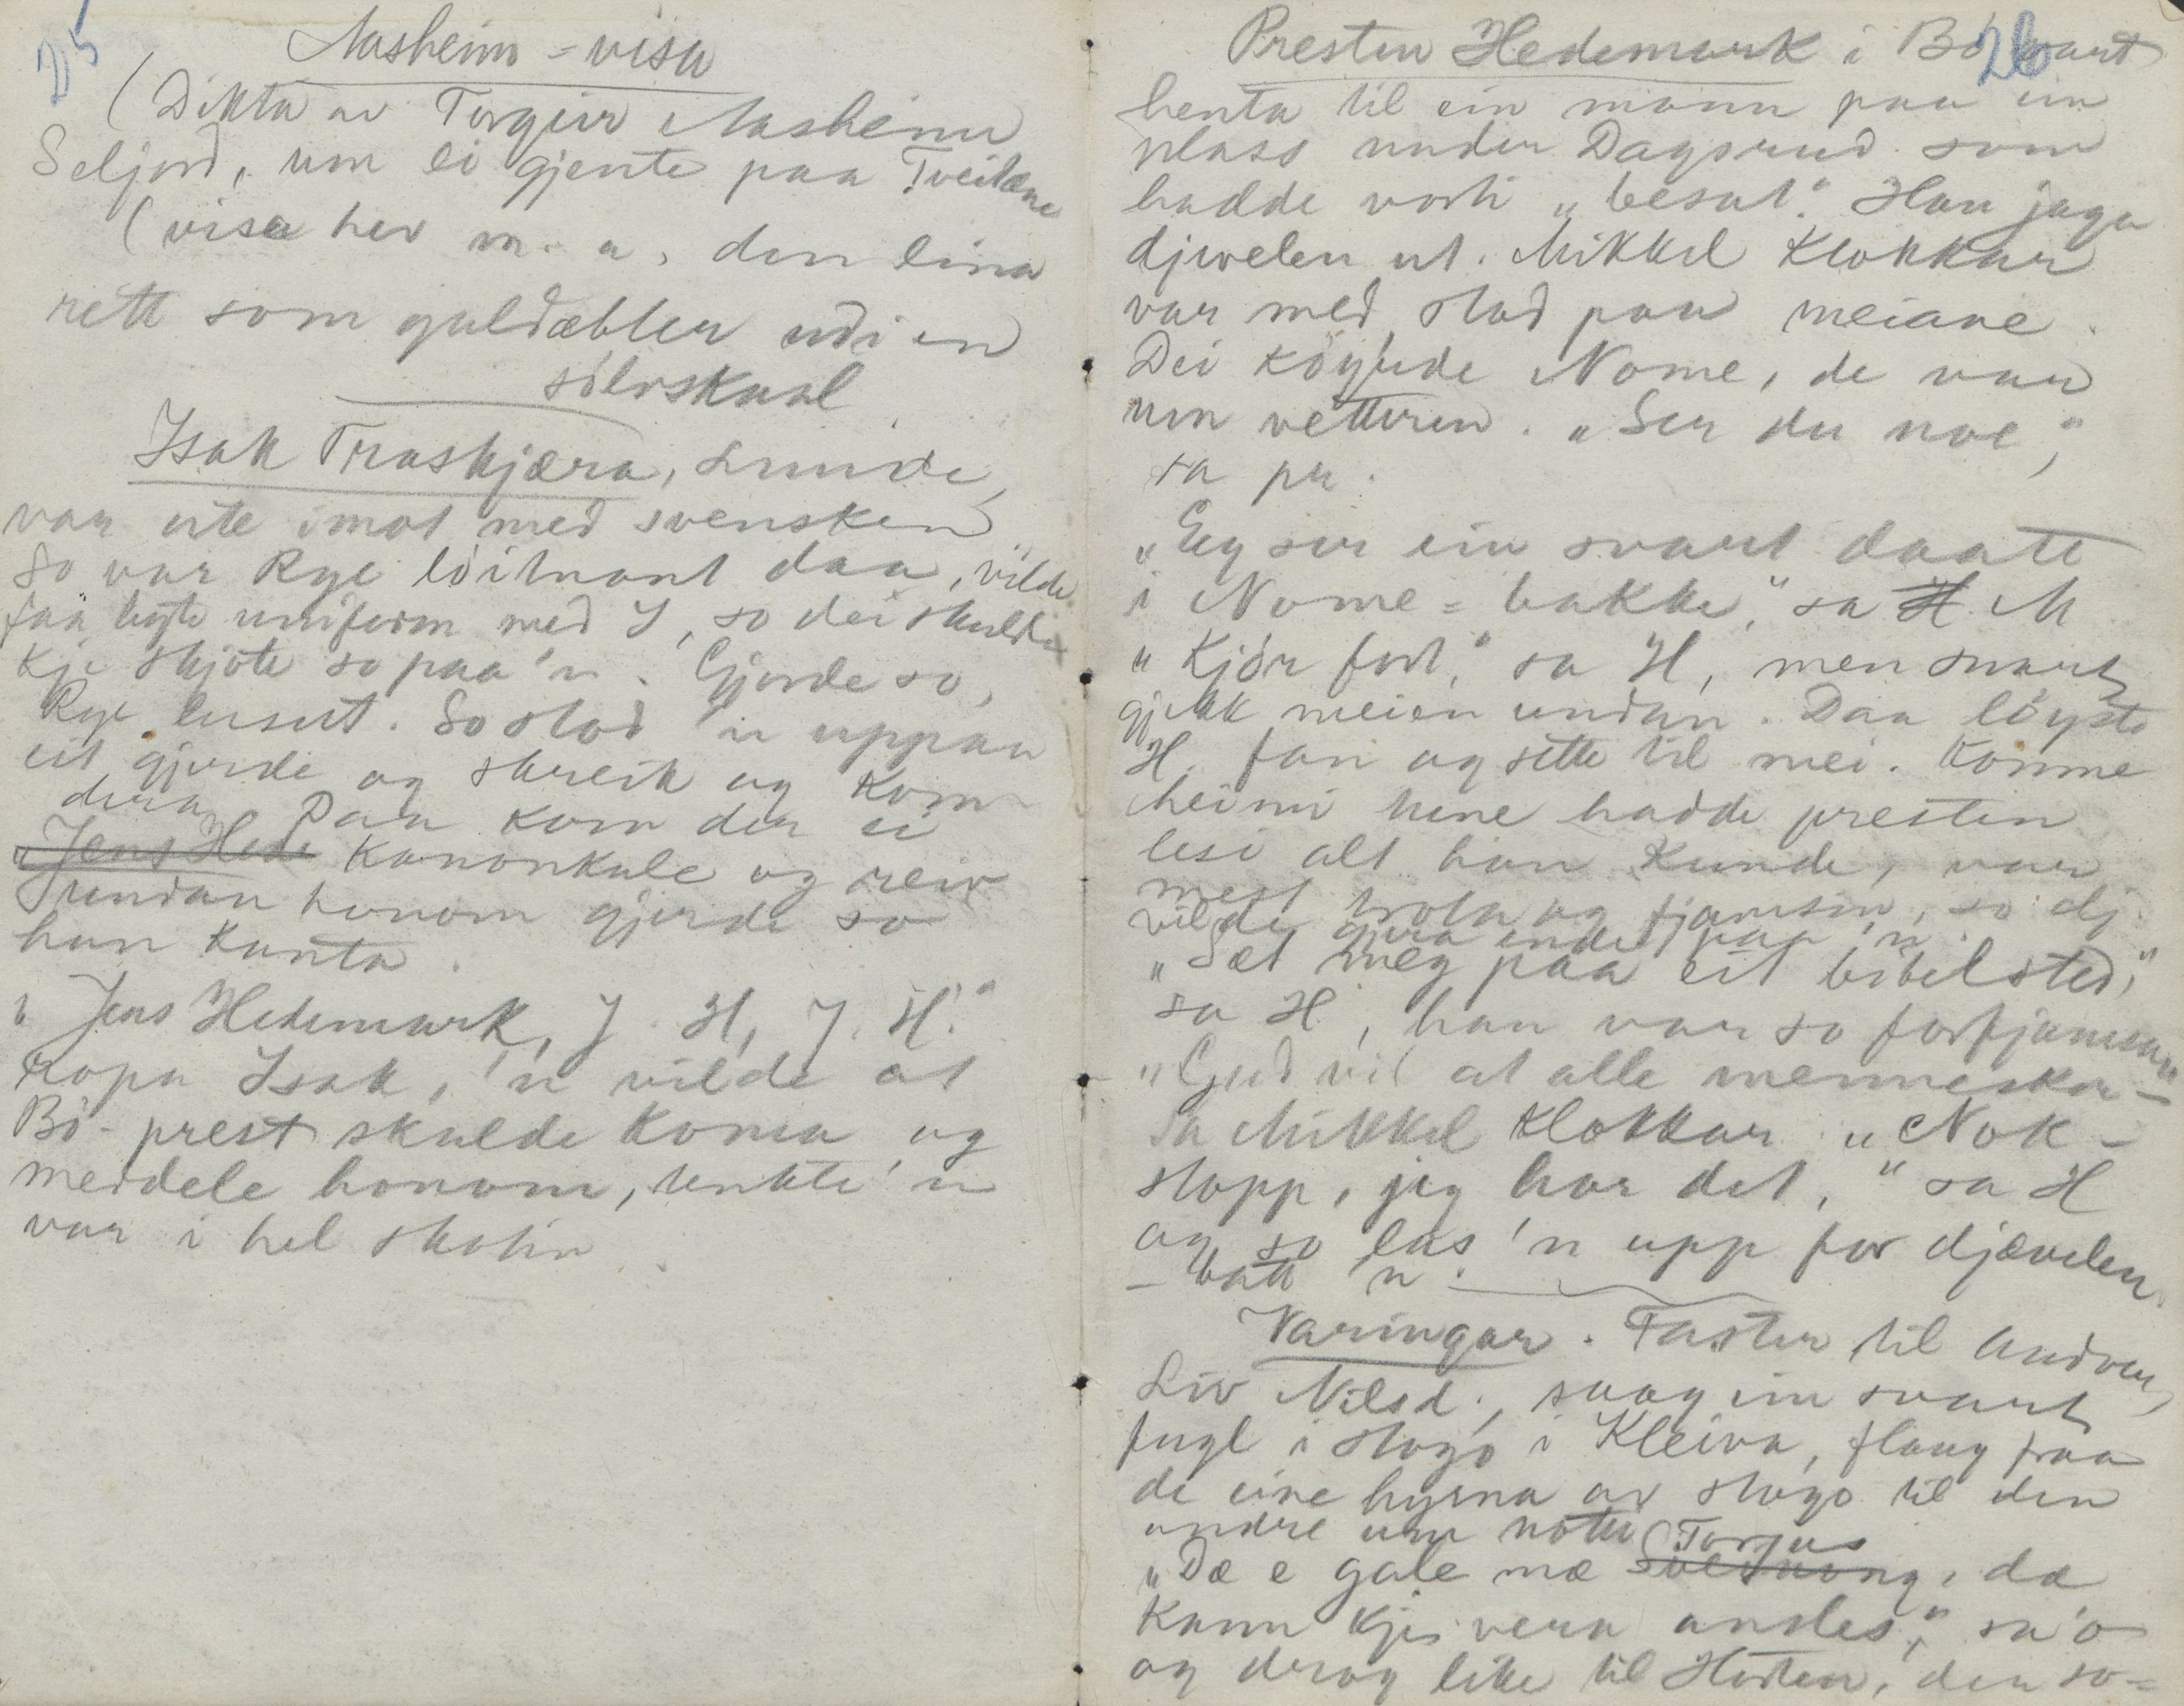 25
Aasheim-visa
(Dikta av Torgeir Aasheim
Seljord, um ei gjente paa Tveitane
(visa hev m. a. den lina
rett som guldæbler udi en
sølvskaal
Isak Traskjæra, Lunde,
var ute imot med svensken
So var Rye löitnant daa, vilde
faa byte uniform med I, so dei skulde
kje skjote so paa'n. Gjorde so,
Rye lusut. So stod 'n uppaa
eit gjerde og skreik og kom
dera. Daa kom der ei
"Jens Hede kanonkule og reiv
undan honom gjerde so
han kanta.
"Jens Hedemark, J. H, J. H."
ropa Isak, 'n vilde at
Bö-prest skulde koma og
meddele honom, tenkte 'n
var i hel skotin.
26
Presten Hedemark i Bö vart
henta til ein mann paa ein
plass under Dagsrud som
hadde vorti "besat". Han jaga
djevelen ut. Mikkel Klokkar
var med, stod paa meiane.
Dei köyrde Nome, de var
um vetteren. "Ser du noe,"
sa pr.
"Eg ser ein svart daate
i Nome-bakke," sa H. M
"Kjör fort," sa H, men snart
gjekk meien undan. Daa löyste
H. fan og sette til mei. Komme
heim hadde presten
lesi alt han kunde, var
mest trota og fjamsin, so dj.
vilde gjera ende paa 'n.
"Sæt meg paa eit bibelsted,"
sa H, han var so forfjamsa
"Gud vil at alle menneskor –
sa Mikkel Klokkar "Nok –
stopp, jeg har det," sa H
og so las 'n upp for djævelen
– batt 'n.
Varingar. Faster til Andreas,
Liv Nilsd., saag ein svart
fugl i stogo i Kleiva, flaug fraa
de eine hyrna av stogo til den
andre um notte Torjus
"Dæ e gale mæ, dæ
kann kje vera anles," sa'o
og drog like til Horten, den so-